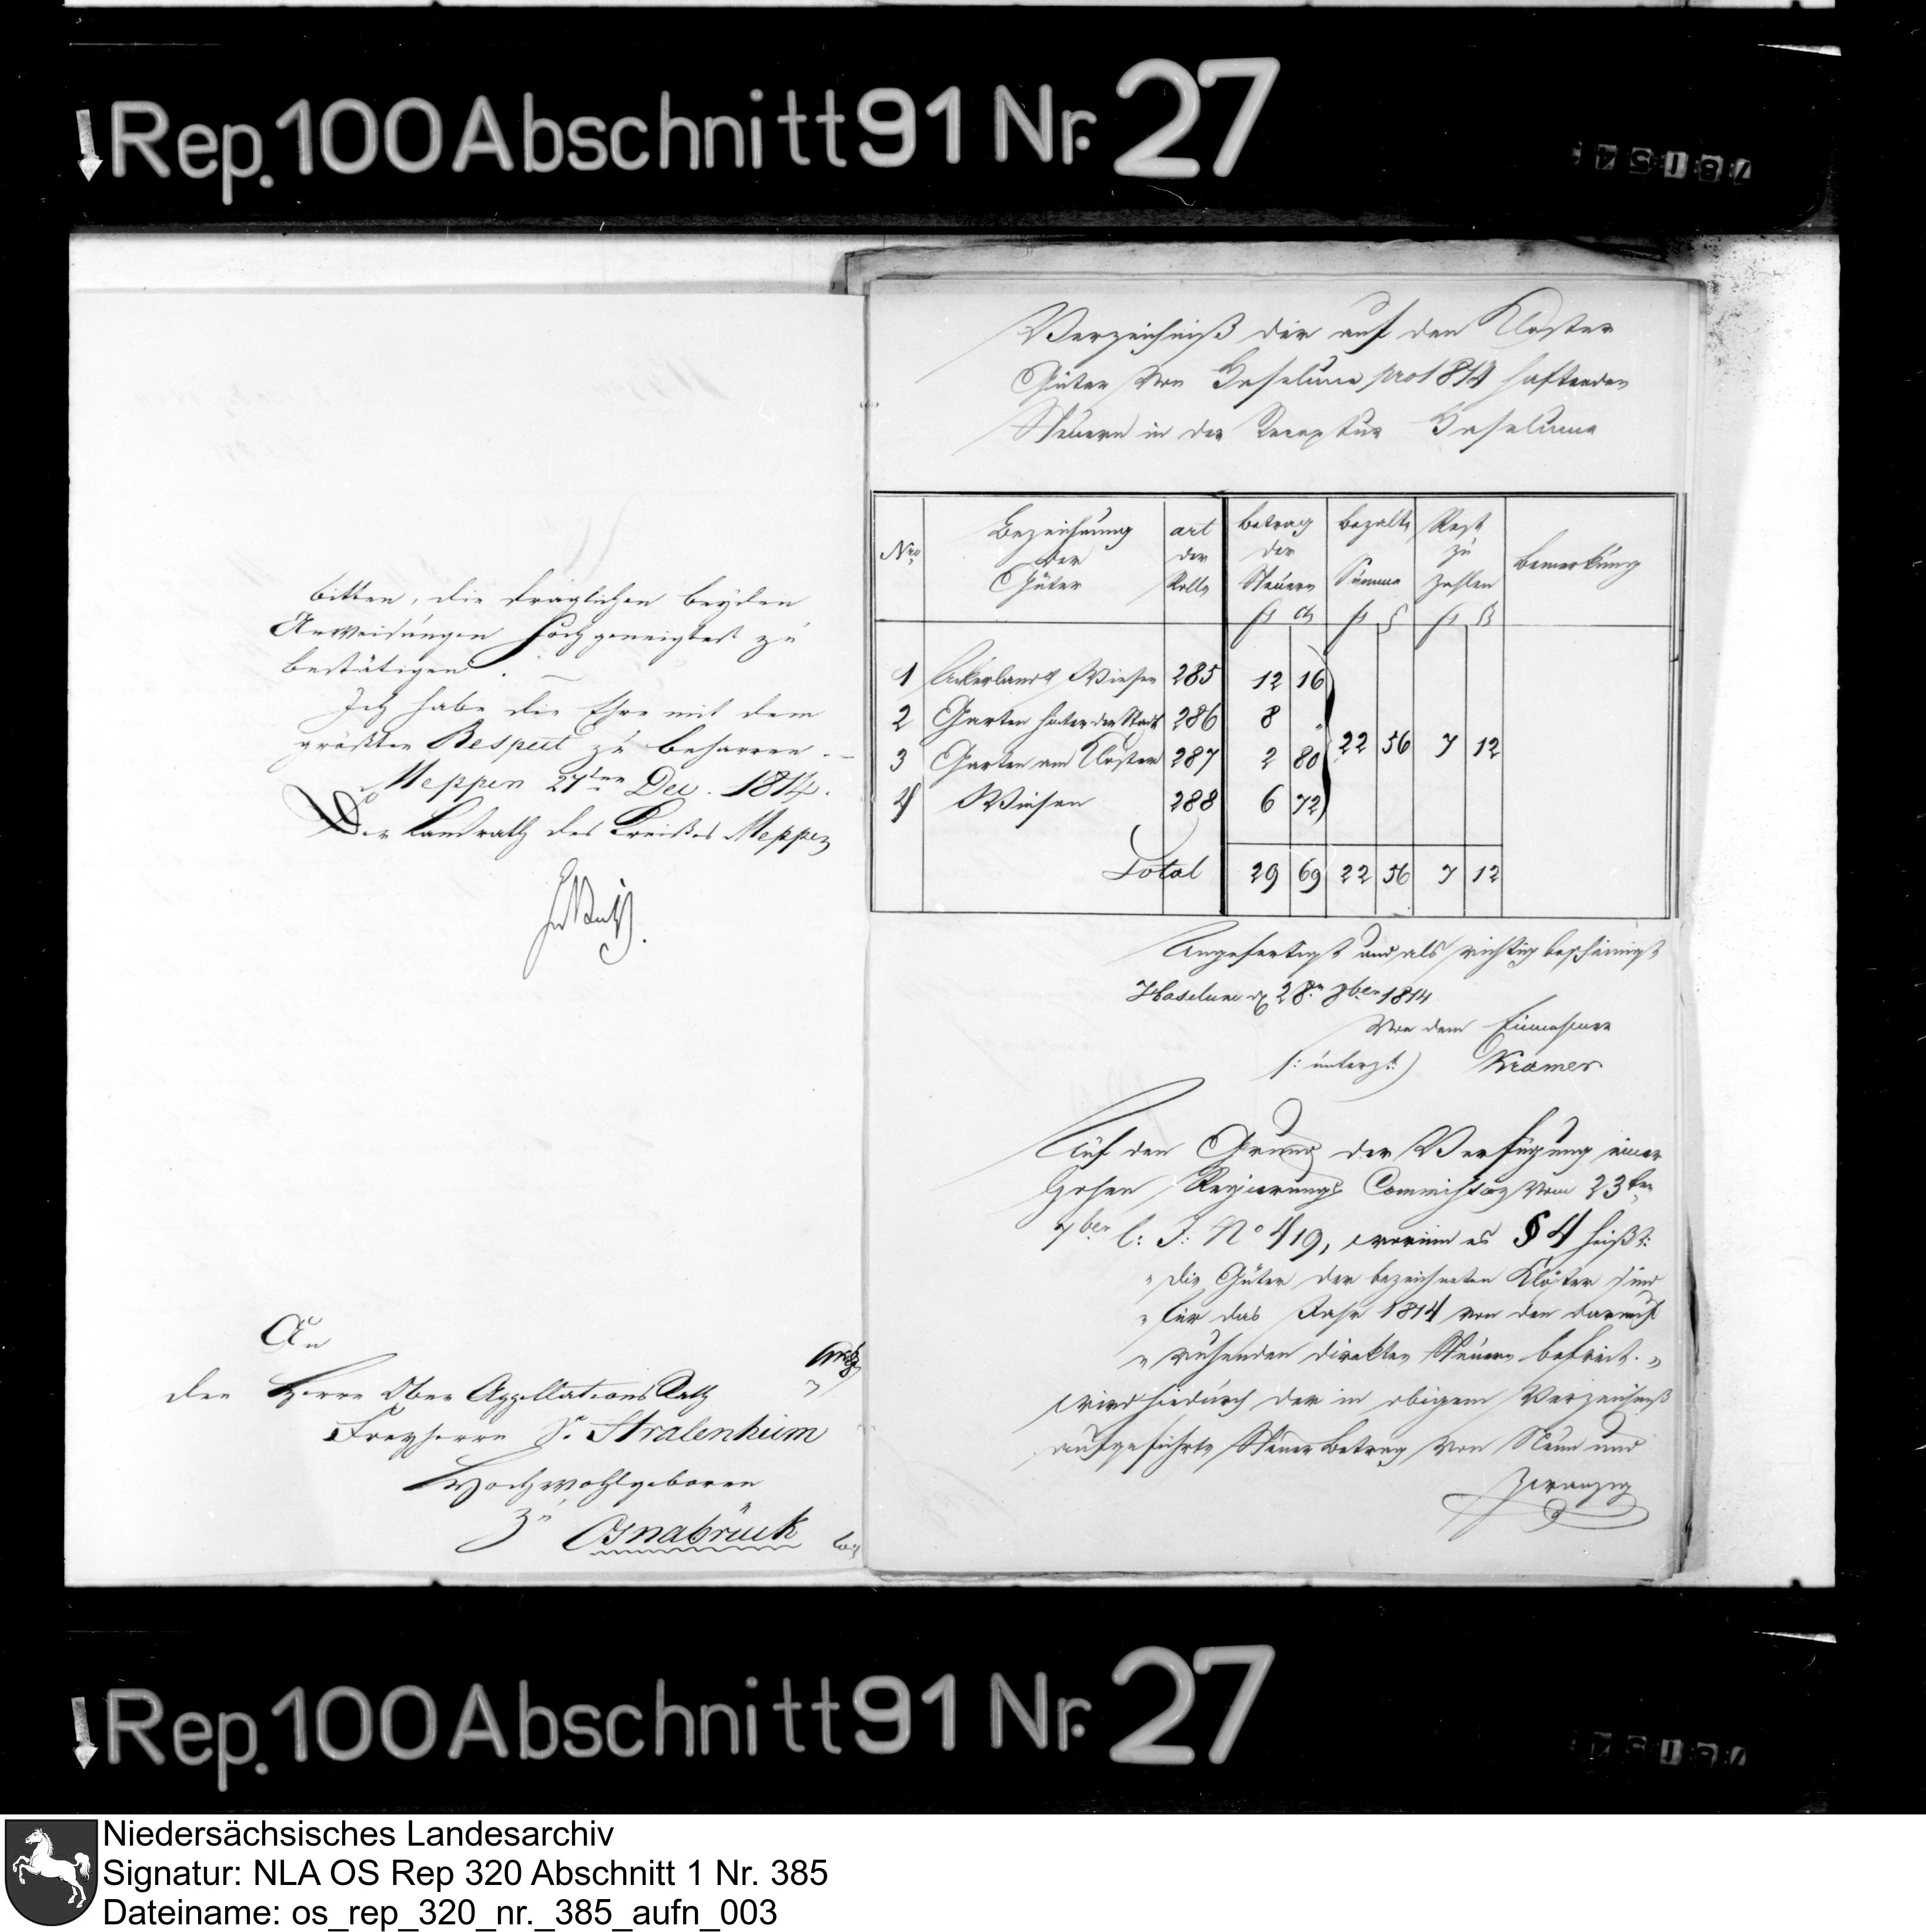 Rep. 100 Abschnitt 91 Nr. 27
bitten, die fräglichen beyden
Anweisungen hochgeneigtest zu
bestätigen.
Ich habe die Ehre mit dem
größten Respect zu beharren.
Meppen 27ten Dec. 1814.
Der Landrath des Kreises Meppen
An
den Herrn Ober Appellations Rath
Freyherrn v. Stralenheim
Hochwohlgeboren
zu Osnabrück
Verzeichniß der auf den Kloster
Güter von Haselune pro 1814 haftenden
Steuern in der Receptur Haselune
Nro. Bezeichnung der Güter art der Rolle betrag der Steuern bezalte Summe Rest zu zahlen bemerkung
1 Ackerland & Wiesen 285 12 16
2 Garten hinter der Stadt 286 8 "
3 Garten am Kloster 287 2 80 22 56 7 12
4 Wiesen 288 6 72
Total 29 69 22 56 7 12
Angefertigt und als richtig bescheinigt
Haselune d 28n 8ber 1814
Von dem Einnehmer
(: unterz:) Kramer
Auf den Grund der Verfügung einer
Hohen Regierungs Commission vom 23ten
7ber l: J: No 419, worinn es § 4 heißt:
" die Güter der bezeichneten Klöster sind
" für das Jahr 1814 von den darauf
" ruhenden direkten Steuern befreit. "
wird hiedurch der in obigem Verzeichniß
aufgeführte Steuer Betrag von Neun und
zwanzig
Rep. 100 Abschnitt 91 Nr. 27
Niedersächsisches Landesarchiv
Signatur: NLA OS Rep 320 Abschnitt 1 Nr. 385
Dateiname: os_rep_320_nr._385_aufn_003